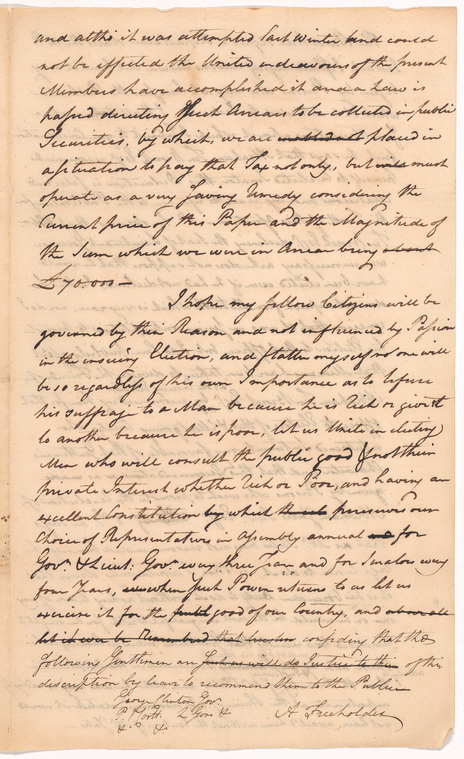 and altho it was attempted last winter and could
not be effected the United endeavours of the present
Members have accomplished it and a Law is
passed directing such Arrears to be collected in public
Securities, by which, we are placed in
a situation to pay that Tax not only, but must
operate as a very saving remedy considering the
Current price of this Paper and the Magnitude of
the Sum which we were in Arrear being about
£70.000 —
I hope my fellow Citizens will be
governed by their Reason and not influenced by Passion
in the ensuing Election, and flatter myself no one will
be so regardless of his own Importance as to refuse
his suffrage to a Man because he is Rich or give it
to another because he is poor, let us Unite in electing
Men who will consult the public good & not their
private Interest whether Rich or Poor, and having an
excellent Constitution by which preserves our
Choice of Representatives in Assembly annual for
Govr. & Lieut: Govr. every three Years and for Senators every
four Years, when such Power returns to us let us
exercise it for the publ good of our Country, and above all
let it ever be Remembred that confiding that the
following Gentlemen are such as will do Justice to their of this
discription beg leave to recommend them to the Public
George Clinton Govr.
P. L Govr &
&. &. A Freeholder